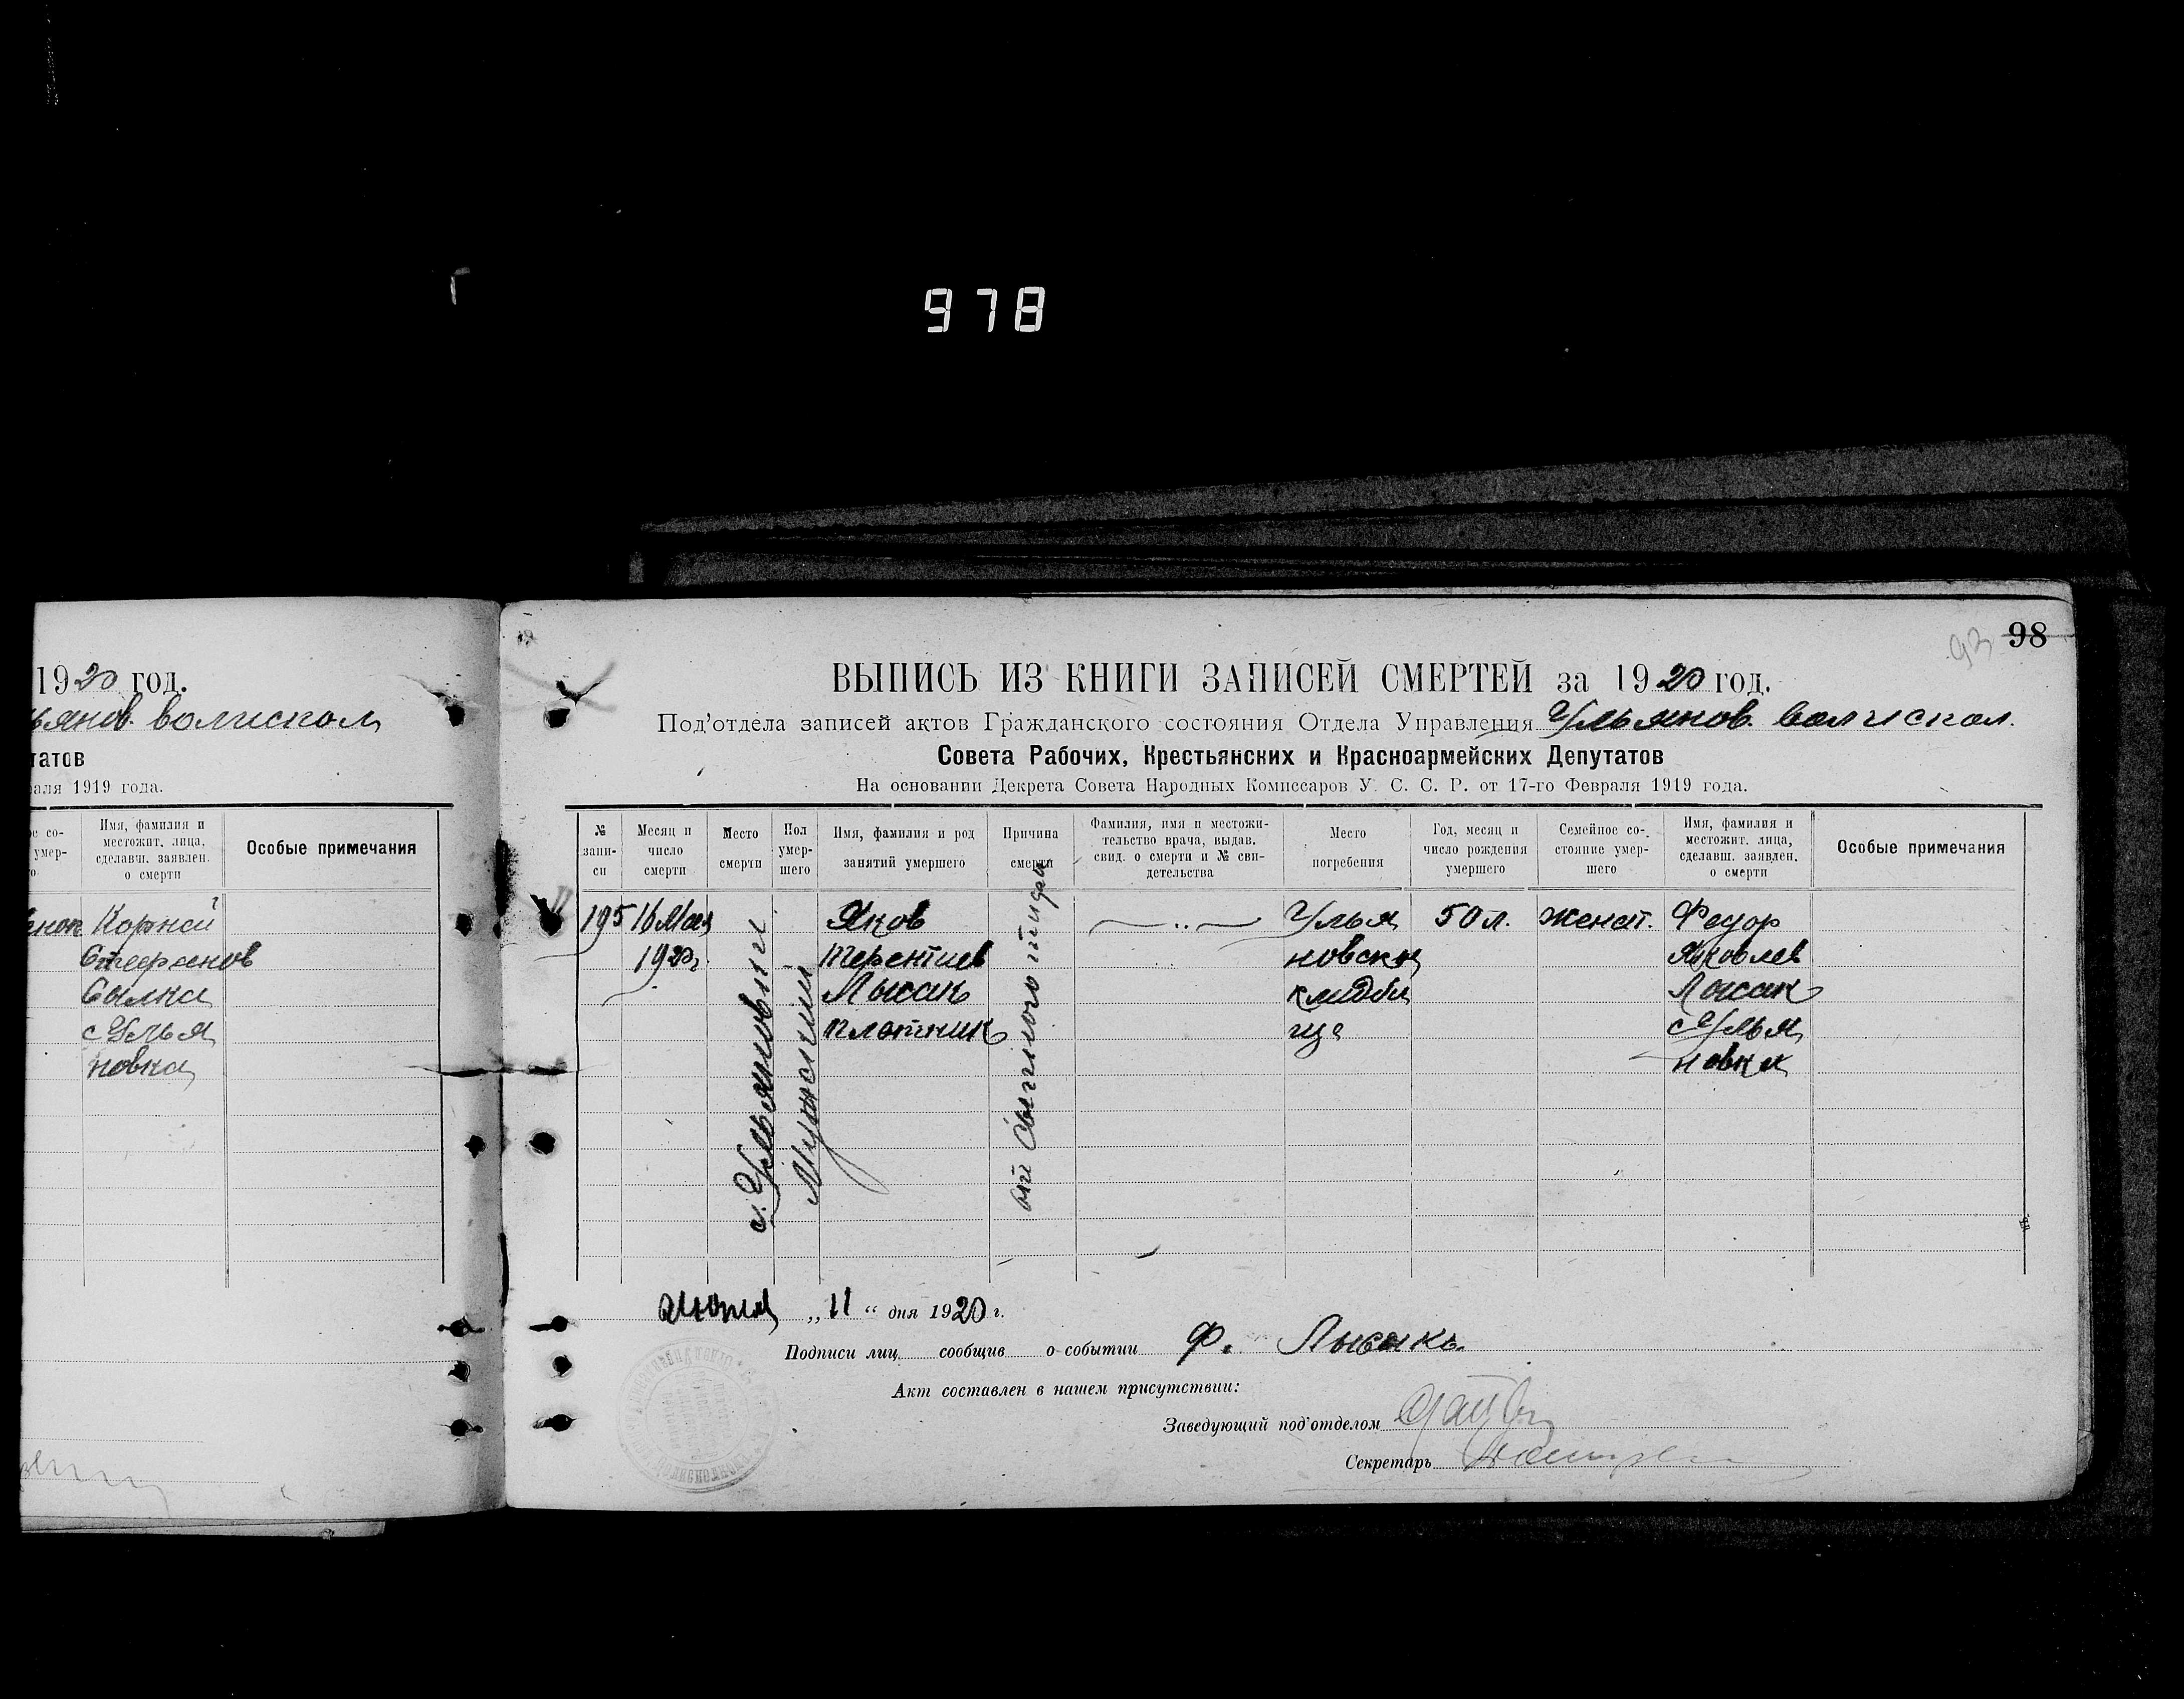 978
1920 год.
ьянов. волисполк
татов
аля 1919 года.
Имя, фамилия и
местожит. лица,
сделавш. заявлен.
о смерти
Особые примечания
Корней
Стефанов
Сылка
с Улья
новка
98
93
ВЫПИСЬ ИЗ КНИГИ ЗАПИСЕЙ СМЕРТЕЙ за 1920 год.
Под'отдела записей актов Гражданского состояния Отдела Управления Ульянов. волиспол.
Совета Рабочих, Крестьянских и Красноармейских Депутатов
На основании Декрета Совета Народных Комиссаров У. С. С. Р. от 17-го Февраля 1919 года.
№
запи-
си
Месяц и
число
смерти
Место
смерти
Пол
умер-
шего
Имя, фамилия и род
занятий умершего
Причина
смерти
Фамилия, имя и местожи-
тельство врача, выдав.
свид. о смерти и № сви-
детельства
Место
погребения
Год, месяц и
число рождения
умершего
Семейное со-
стояние умер-
шего
Имя, фамилия и
местожит. лица,
сделавш. заявлен.
о смерти
Особые примечания
195
16 Мая
1920 г.
с. Ульяновки
Мужский
Яков
Терентиев
Лысак
плотник
от сыпного тифа
Улья
новско
кладби
ще
50 л.
женат.
Федор
Яковлев
Лысак
с Улья
новка
Июня „11“ дня 1920 г.
Подписи лиц сообщив о событии Ф. Лысакъ
Акт составлен в нашем присутствии:
Заведующий под'отделом
Секретарь